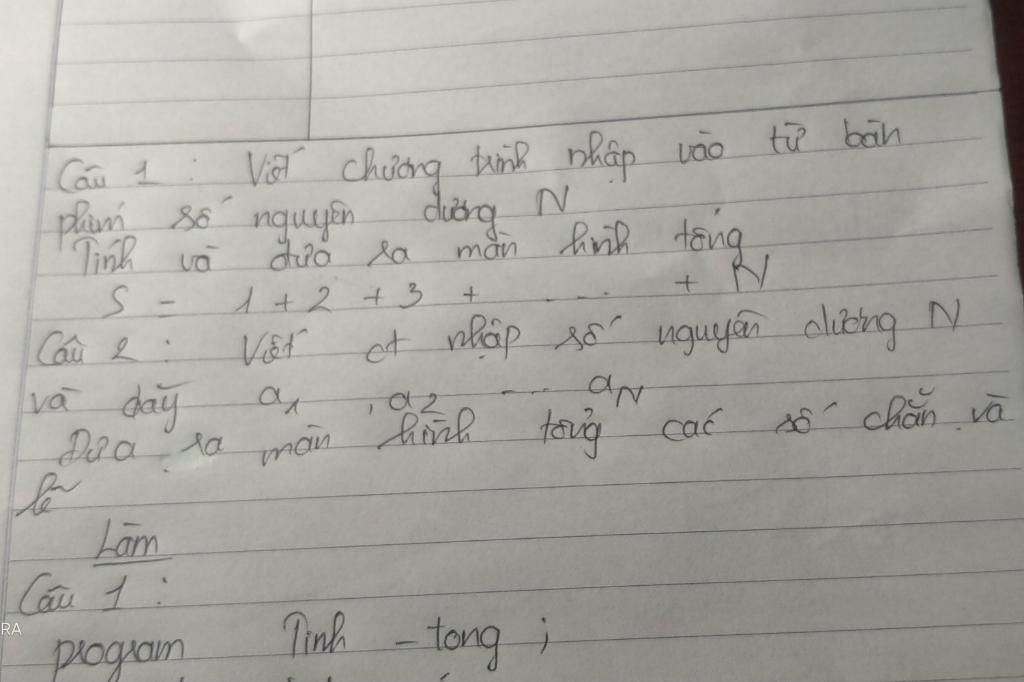 Câu 1 : Viết chương trình nhập vào từ bàn
phím số nguyên dương N
Tính và đưa ra màn hình tổng
S = 1 + 2 + 3 + ..... + N
Câu 2 : Viết ct nhập số nguyên dương N
và dãy a1 , a2 ... aN
Đưa ra màn hình tổng các số chẵn và
lẻ
Làm
Câu 1 :
RA
program Tinh - tong ;